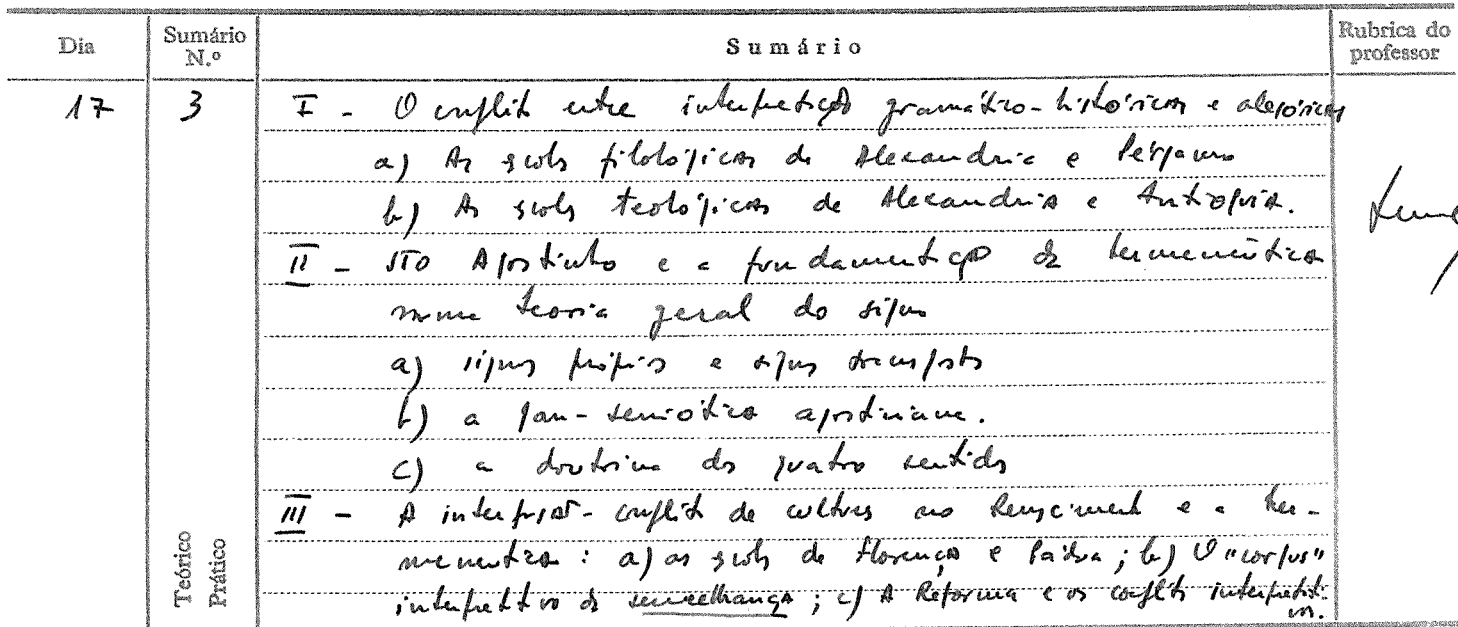 Dia Sumário N.º Sumário Rubrica do professor
17 3 I - O conflito entre interpretação gramático-histórica e alegórica
a) As escolas filológicas de Alexandria e Pérgamo
b) As escolas teológicas de Alexandria e Antioquia.
II - STO Agostinho e a fundamentação da hermenêutica
numa teoria geral do signo
a) signos próprios e signos transpostos
b) a pan-semiótica agostiniana.
c) a doutrina dos quatro sentidos
III - A conflito de culturas no Renascimento e a her-
menêutica : a) as escolas de Florença e Pádua ; b) O "corpus"
interpretativo da semelhança ; c) A Reforma e os conflitos interpretati-
vos.
Teórico
Prático